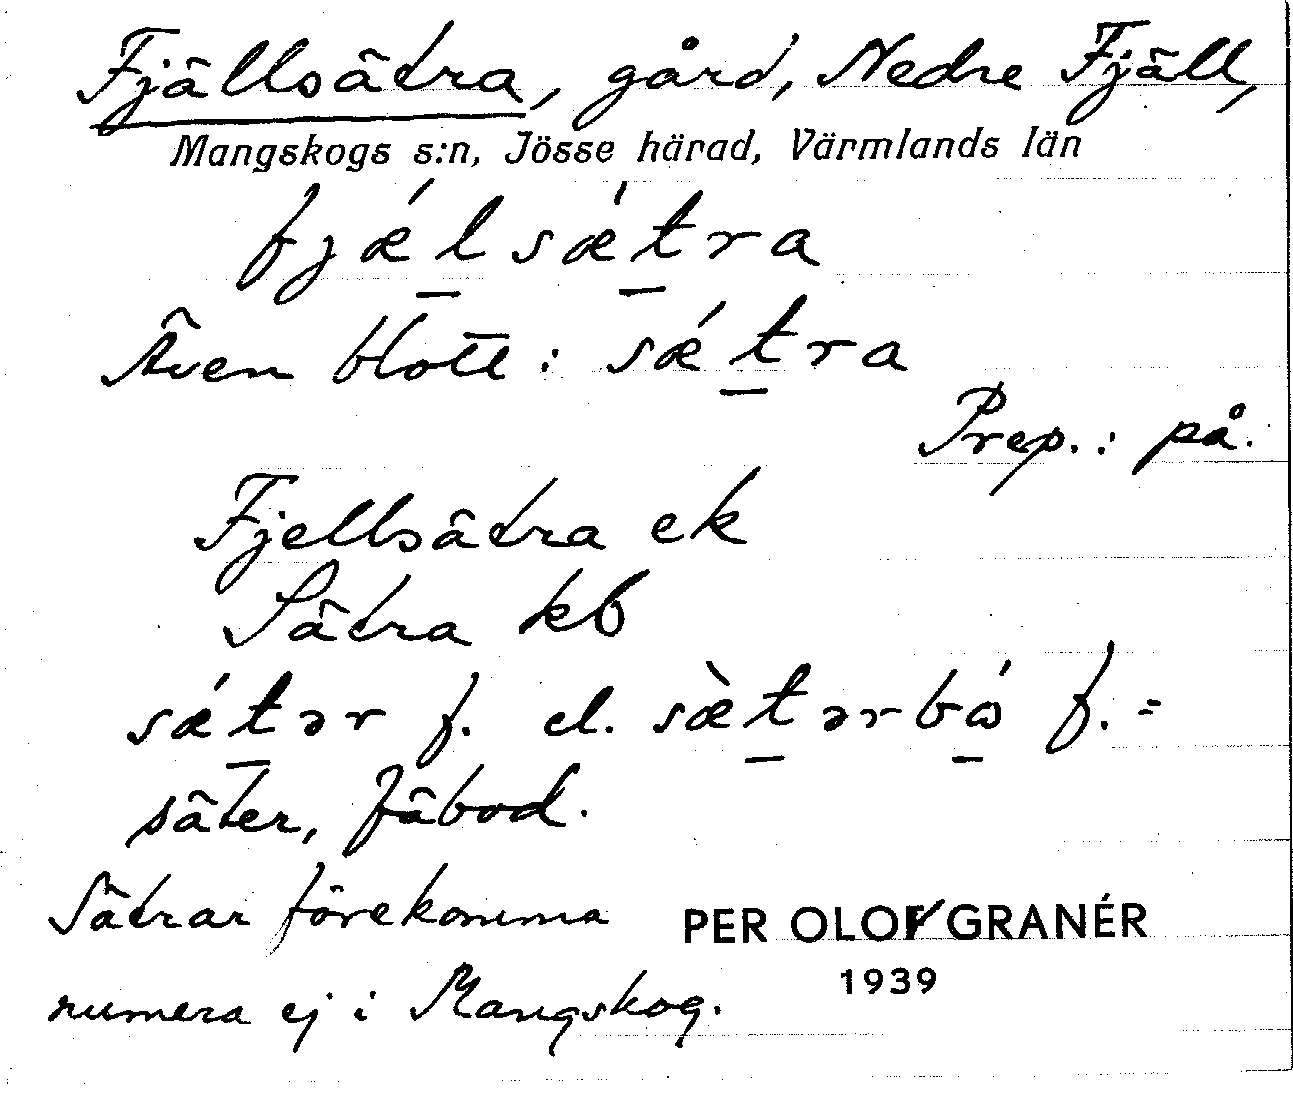 Fjällsätra, gård, Nedre Fjäll,
Mangskogs s:n, Jösse härad, Värmlands län
fjǽl̲sǽt̲ra
Även blott: sǽt̲ra
Prep.: på.
Fjellsätra ek
Sätra kb
sǽt̲ər f. el. sæ̀t̲ərbɷ̲́ f. =
säter, fäbod.
Sätrar förekomma
numera ej i Mangskog.
PER OLOF GRANÉR
1939